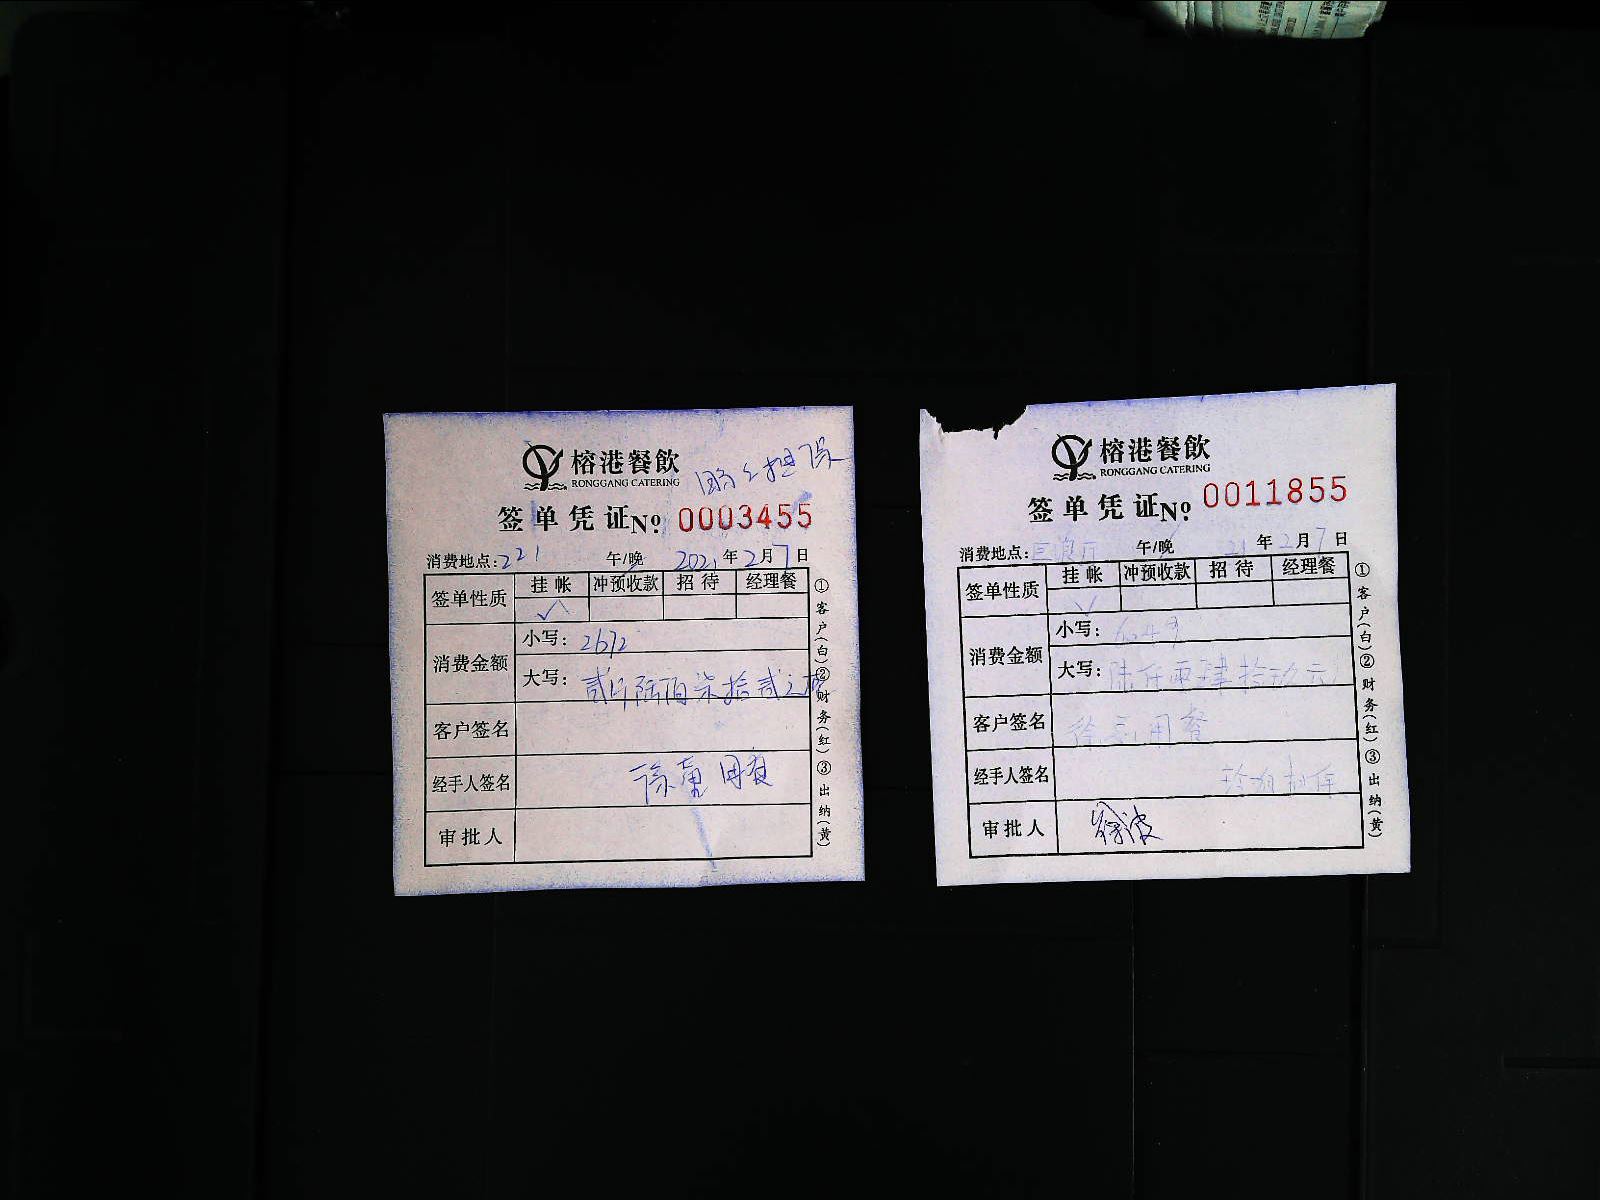 榕港餐飲
RONGGANG CATERING
担保
签单凭证No. 0003455
消费地点: 221 午/晚 2021年2月7日
签单性质 挂帐 冲预收款 招待 经理餐
✓
消费金额 小写: 2672
大写: 贰仟陆佰柒拾贰元整
客户签名
经手人签名 用餐
审批人
①客户(白)②财务(红)③出纳(黄)
榕港餐飲
RONGGANG CATERING
签单凭证No. 0011855
消费地点: 午/晚 21年2月7日
签单性质 挂帐 冲预收款 招待 经理餐
✓
消费金额 小写:
大写: 陆仟零肆拾元
客户签名 徐 用餐
经手人签名 担保
审批人 徐波
①客户(白)②财务(红)③出纳(黄)